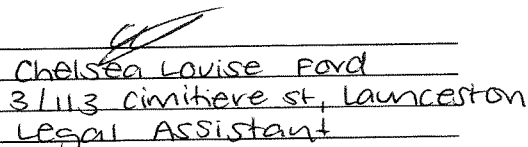 Chelsea Louise Ford
3/113 Cimitiere St, Launceston
Legal Assistant